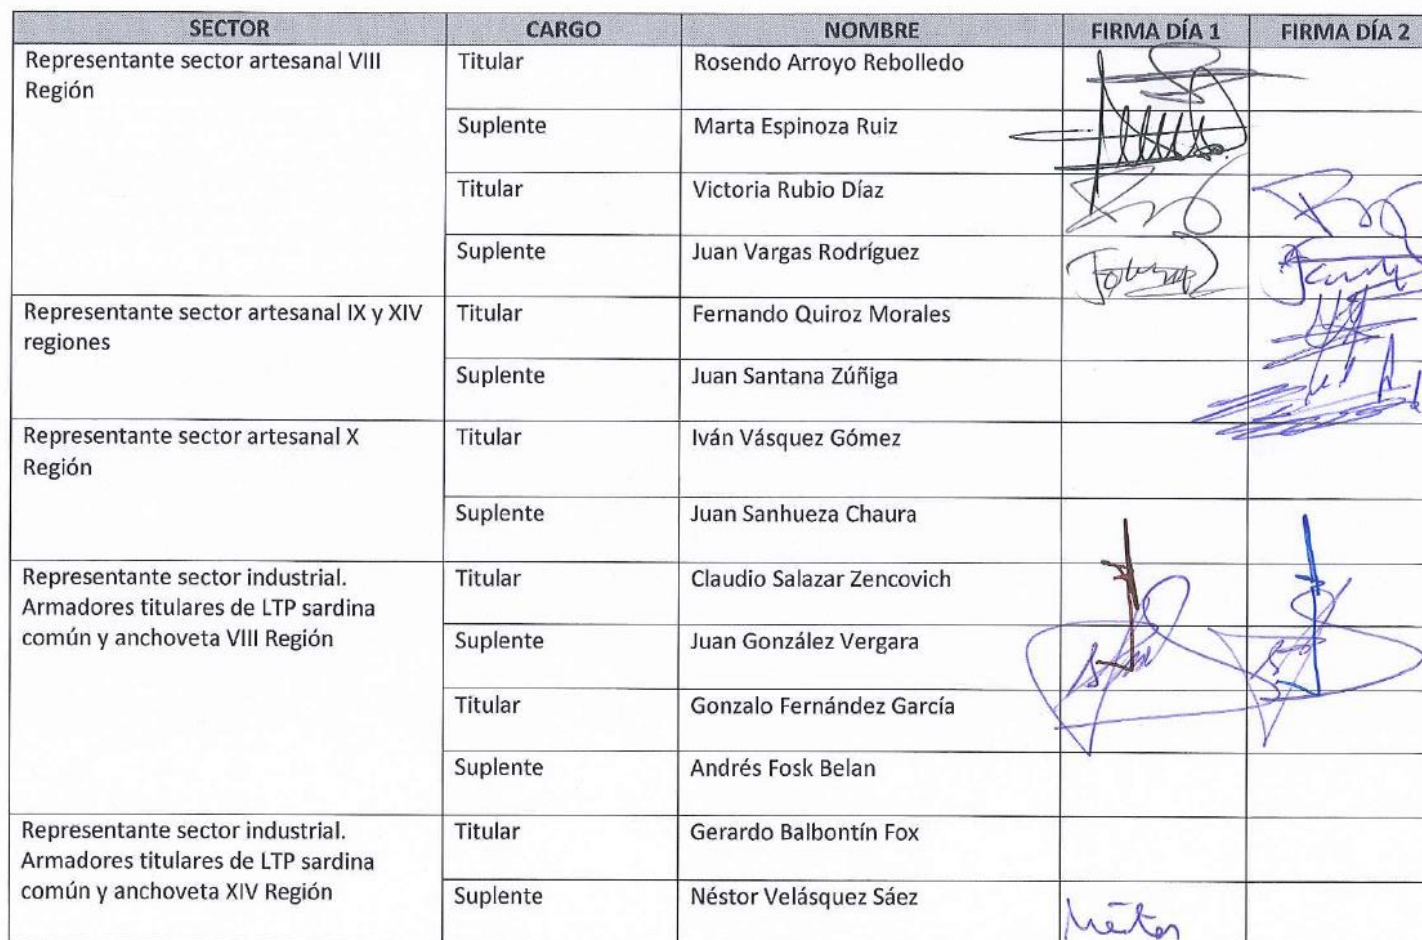 SECTOR CARGO NOMBRE FIRMA DÍA 1 FIRMA DÍA 2
Representante sector artesanal VIII Región Titular Rosendo Arroyo Rebolledo
Suplente Marta Espinoza Ruiz
Titular Victoria Rubio Díaz
Suplente Juan Vargas Rodríguez
Representante sector artesanal IX y XIV regiones Titular Fernando Quiroz Morales
Suplente Juan Santana Zúñiga
Representante sector artesanal X Región Titular Iván Vásquez Gómez
Suplente Juan Sanhueza Chaura
Representante sector industrial. Armadores titulares de LTP sardina común y anchoveta VIII Región Titular Claudio Salazar Zencovich
Suplente Juan González Vergara
Titular Gonzalo Fernández García
Suplente Andrés Fosk Belan
Representante sector industrial. Armadores titulares de LTP sardina común y anchoveta XIV Región Titular Gerardo Balbontín Fox
Suplente Néstor Velásquez Sáez